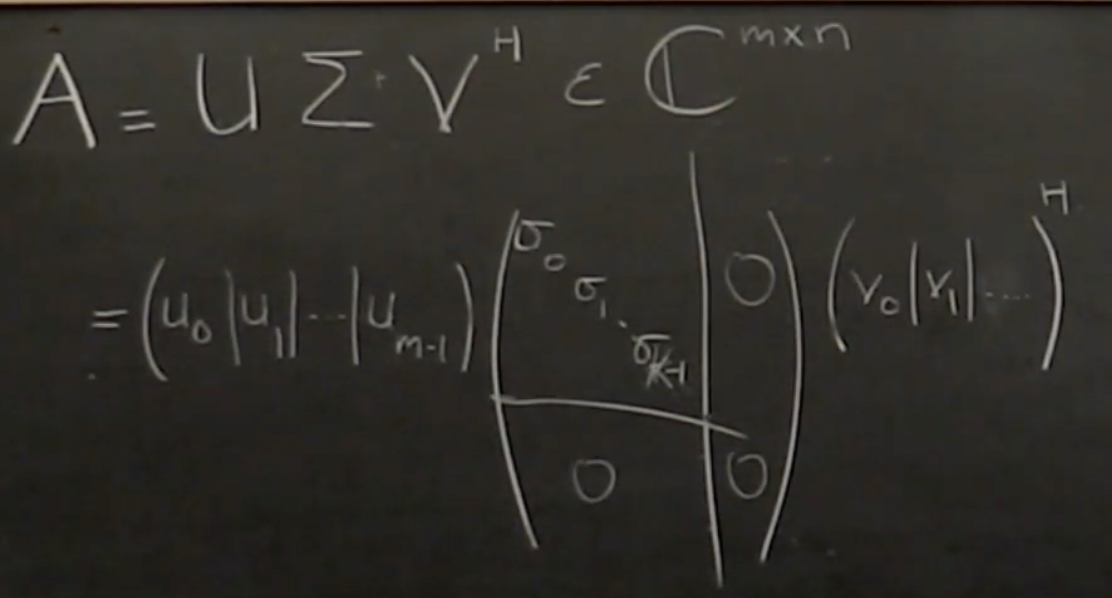 A = U Σ V^H ε ℂ^{m×n}
= (u_0 | u_1 | ... | u_{m-1}) ( σ_0 σ_1 ⋱ σ_{k-1} | 0 ; 0 | 0 ) (v_0 | v_1 | ....)^H